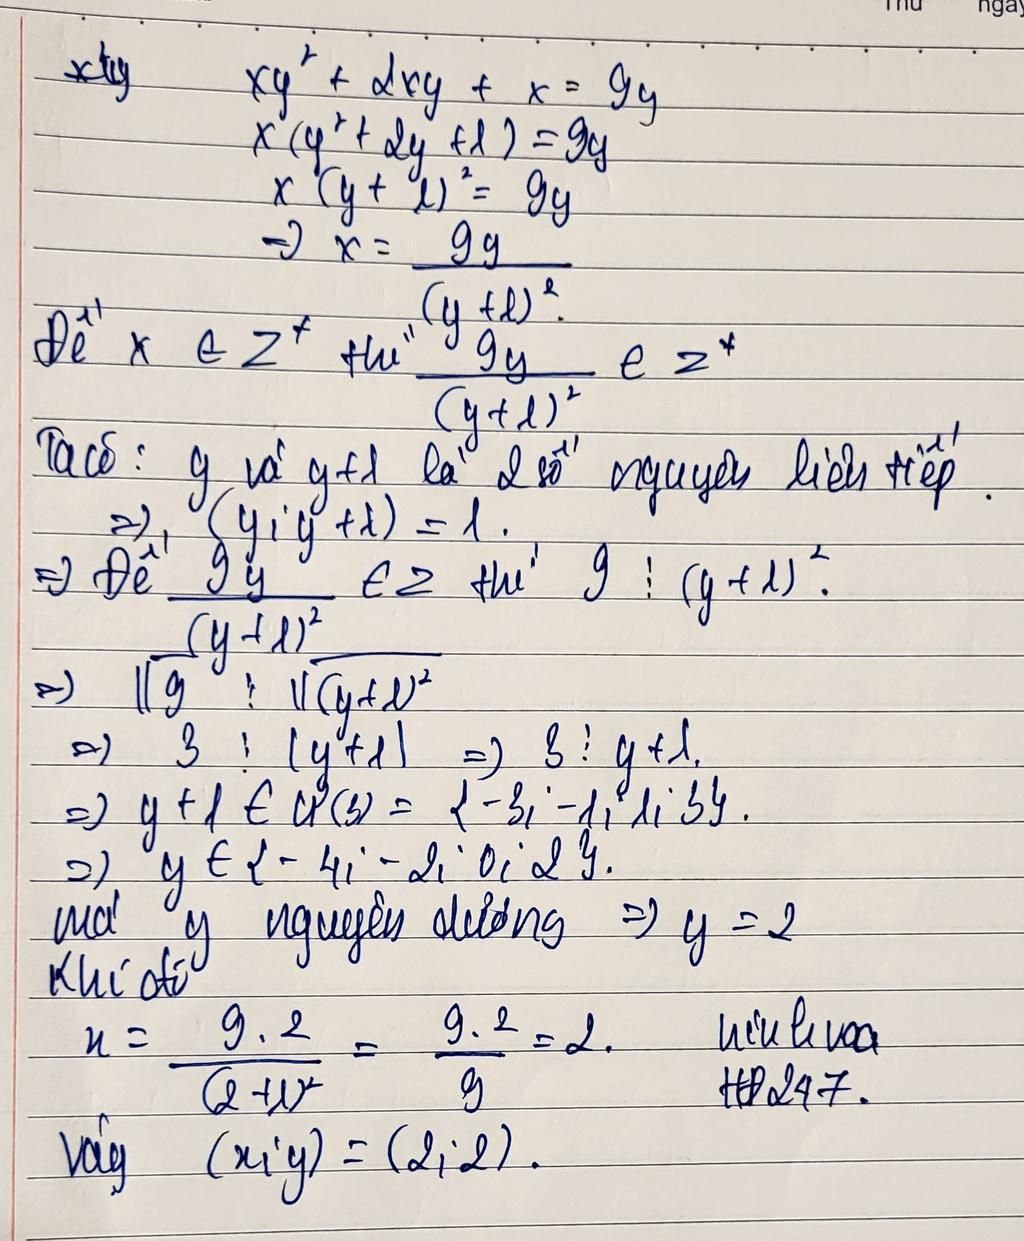 Thứ ngày
xy² + 2xy + x = 9y
x(y² + 2y + 1) = 9y
x(y + 1)² = 9y
=> x = 9y / (y + 1)².
Để x ∈ Z⁺ thì 9y / (y + 1)² ∈ Z⁺
Ta có: y và y+1 là 2 số nguyên liên tiếp.
=> (y; y + 1) = 1.
=> Để 9y / (y + 1)² ∈ Z thì 9 ⋮ (y + 1)².
=> √9 ⋮ √(y+1)²
=> 3 ⋮ |y+1| => 3 ⋮ y+1.
=> y+1 ∈ Ư(3) = {-3; -1; 1; 3}.
=> y ∈ {-4; -2; 0; 2}.
mà y nguyên dương => y = 2
Khi đó
x = 9.2 / (2+1)² = 9.2 / 9 = 2.
247.
Vậy (x; y) = (2; 2).